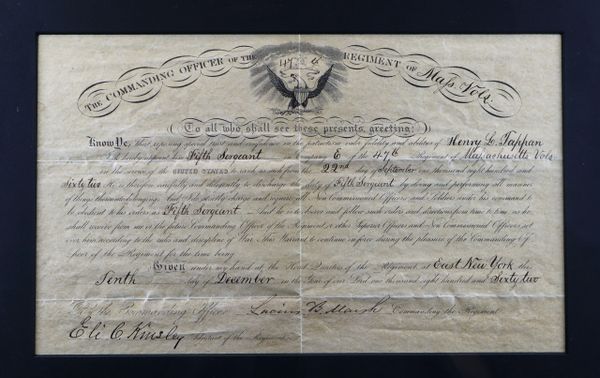 47th
THE COMMANDING OFFICER OF THE REGIMENT OF Mass. Vols.
To all who shall see these presents, greeting:
Know Ye, That reposing special trust and confidence in the patriotism, valor, fidelity and abilities of Henry L. Tappan
I do hereby appoint him Fifth Sergeant company E of the 47th Regiment of Massachusetts Vols.
in the service of the UNITED STATES to rank as such from the 22nd day of September one thousand eight hundred and
Sixty two He is therefore carefully and diligently to discharge the duty of Fifth Sergeant by doing and performing all manner
of things thereunto belonging. And I do strictly charge and require all Non Commissioned Officers and Soldiers under his command to
be obedient to his orders as Fifth Sergeant And he is to observe and follow such orders and directions from time to time as he
shall receive from me or the future Commanding Officer of the Regiment or other Superior Officers and Non Commissioned Officers set
over him according to the rules and discipline of War. This Warrant to continue in force during the pleasure of the Commanding Of-
ficer of the Regiment for the time being.
Given under my hand at the Head Quarters of the Regiment at East New York this
Tenth day of December in the Year of our Lord one thousand eight hundred and Sixty two
By the Commanding Officer Lucius B. Marsh Commanding the Regiment
Eli C. Kinsley Adjutant of the Regiment